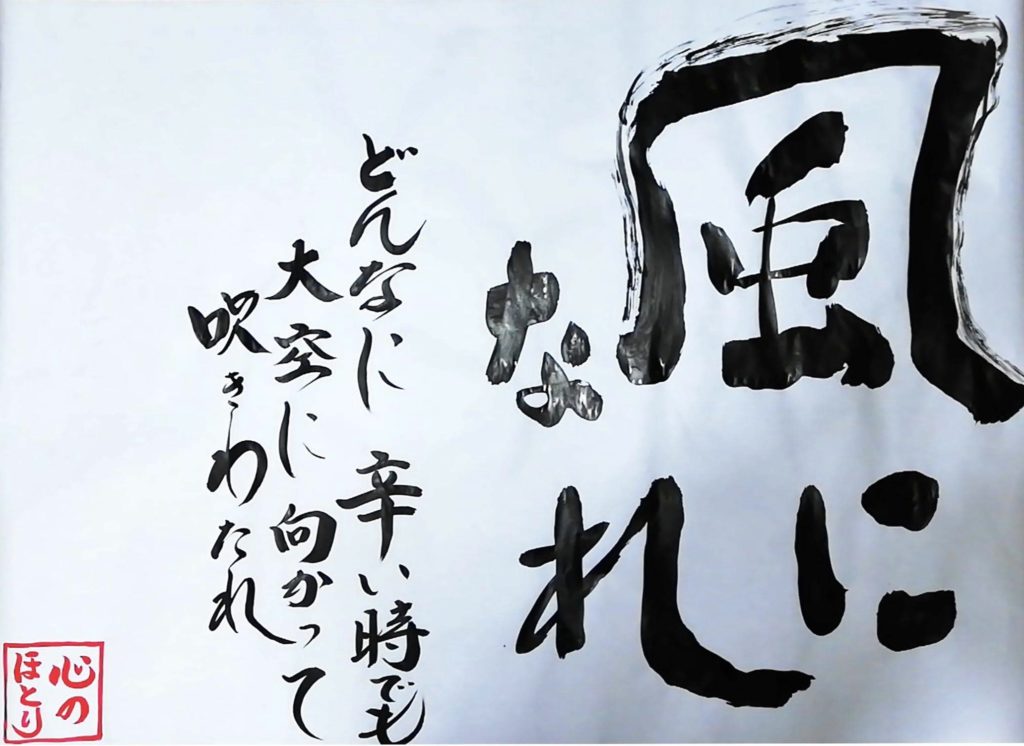 風に
なれ
どんなに 辛い時でも
大空に向かって
吹きわたれ
心の
ほとり